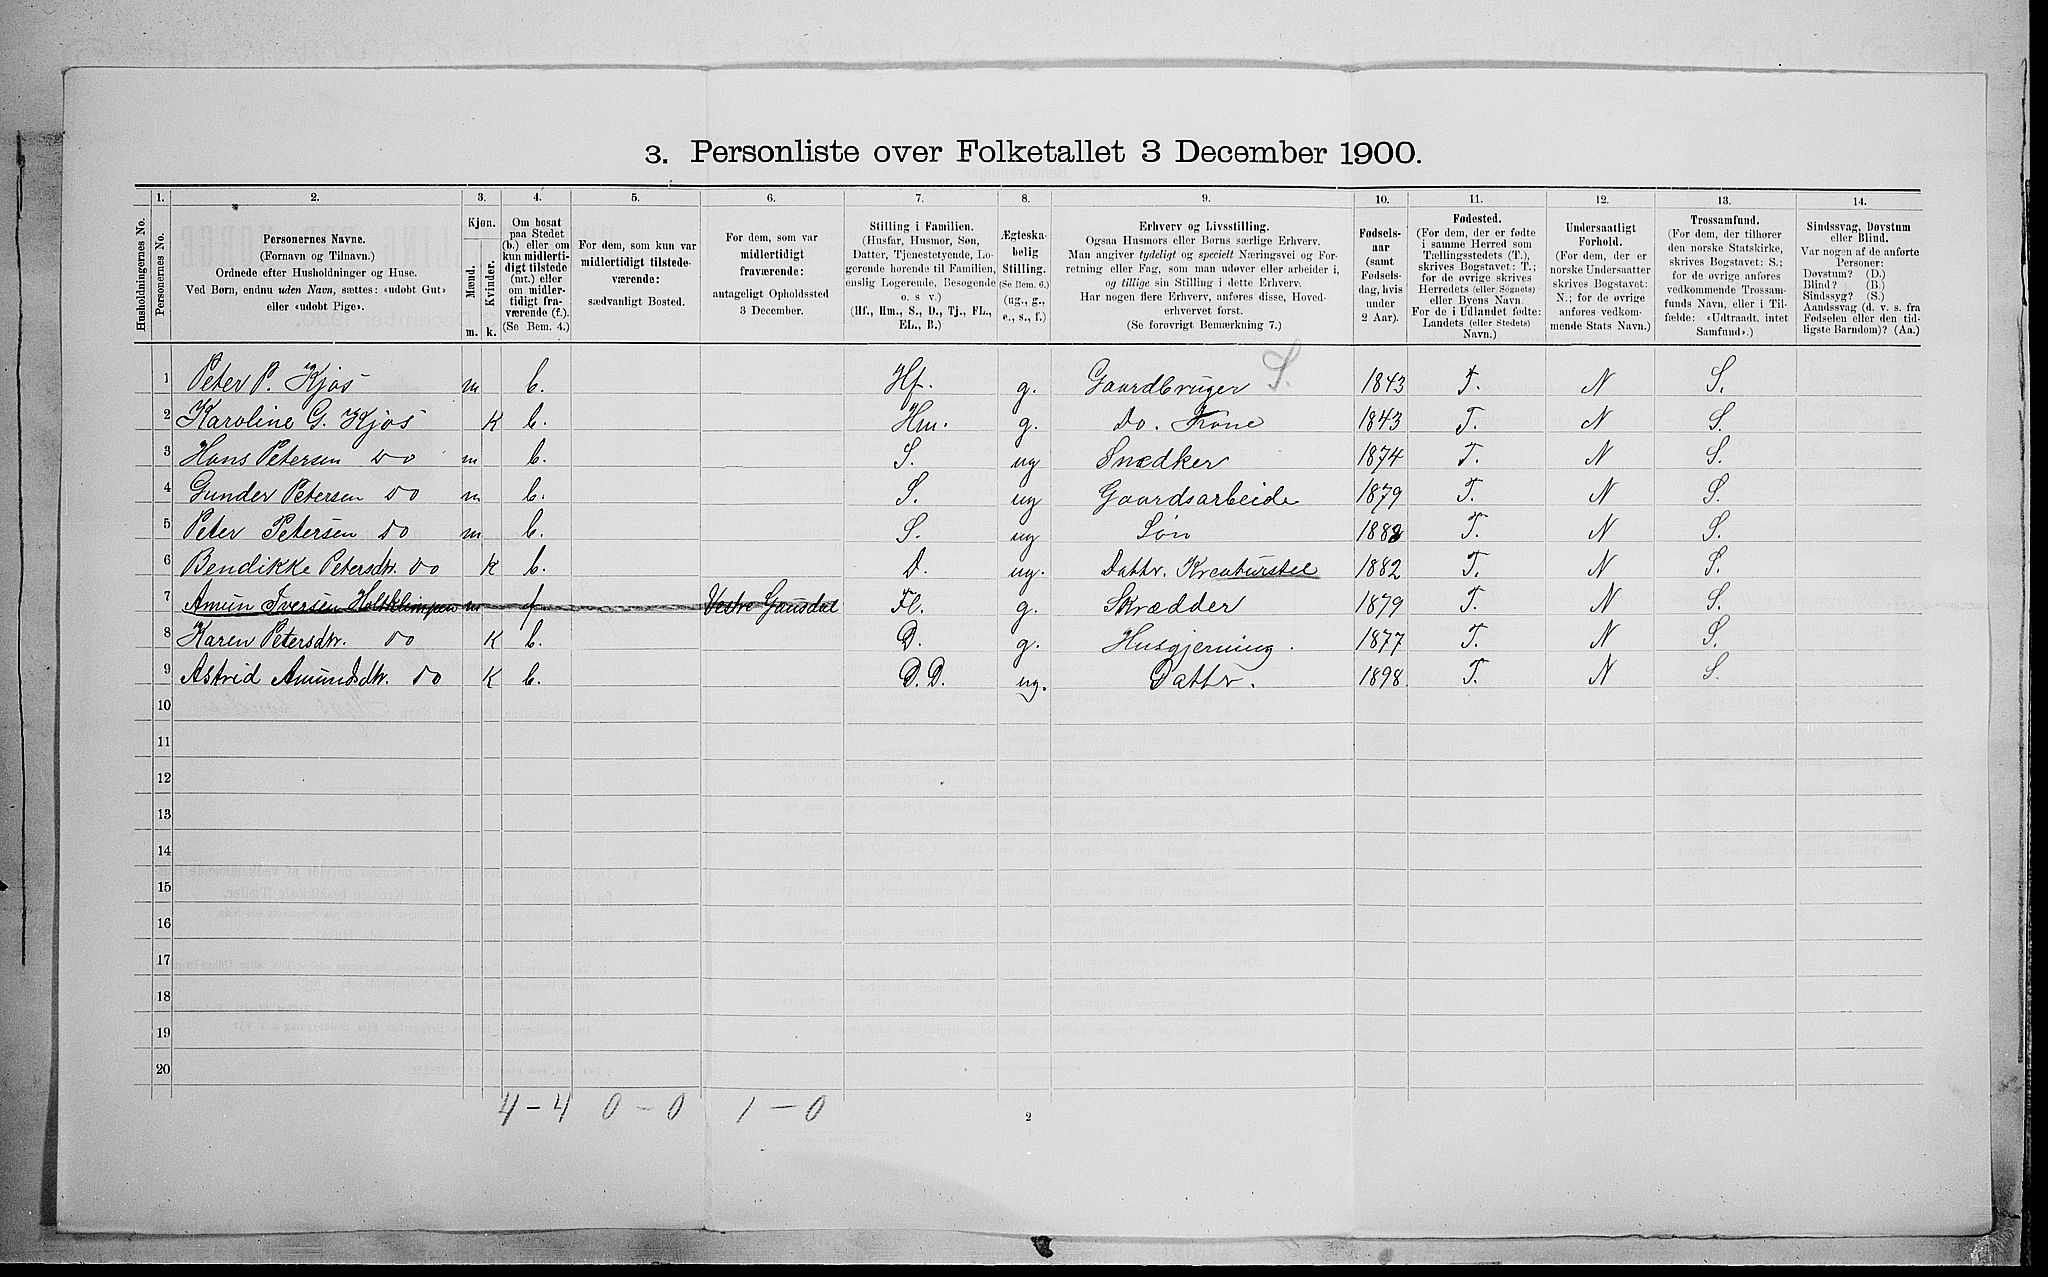 3. Personliste over Folketallet 3 December 1900.
1. 2. 3. 4. 5. 6. 7. 8. 9. 10. 11. 12. 13. 14.
Husholdningernes No.
Personernes No.
Personernes Navne.
(Fornavn og Tilnavn.)
Ordnede efter Husholdninger og Huse.
Ved Børn, endnu uden Navn, sættes: «udøbt Gut»
eller «udøbt Pige».
Kjøn.
Mænd. Kvinder.
m. k.
Om bosat
paa Stedet
(b.) eller om
kun midlerti-
digt tilstede
(mt.) eller
om midler-
tidigt fra-
værende (f.).
(Se Bem. 4.)
For dem, som kun var
midlertidigt tilstede-
værende:
sædvanligt Bosted.
For dem, som var
midlertidigt
fraværende:
antageligt Opholdssted
3 December.
Stilling i Familien.
(Husfar, Husmor, Søn,
Datter, Tjenestetyende, Lo-
gerende hørende til Familien,
enslig Logerende, Besøgende
o. s v.)
(Hf., Hm., S., D., Tj., FL.,
EL., B.)
Ægteska-
belig
Stilling.
(Se Bem. 6.)
(ug., g.,
e., s., f.)
Erhverv og Livsstilling.
Ogsaa Husmors eller Børns særlige Erhverv.
Man angiver tydeligt og specielt Næringsvei og For-
retning eller Fag, som man udøver eller arbeider i,
og tillige sin Stilling i dette Erhverv.
Har nogen flere Erhverv, anføres disse, Hoved-
erhvervet først.
(Se forøvrigt Bemærkning 7.)
Fødsels-
aar
(samt
Fødsels-
dag, hvis
under
2 Aar).
Fødested.
(For dem, der er fødte
i samme Herred som
Tællingsstedets (T.),
skrives Bogstavet: T.;
for de øvrige skrives
Herredets (eller Sognets)
eller Byens Navn.
For de i Udlandet fødte:
Landets (eller Stedets)
Navn.)
Undersaatligt
Forhold.
(For dem, der er
norske Undersaatter
skrives Bogstavet:
N.; for de øvrige
anføres vedkom-
mende Stats Navn.)
Trossamfund.
(For dem, der tilhører
den norske Statskirke,
skrives Bogstavet: S.;
for de øvrige anføres
vedkommende Trossam-
funds Navn, eller i Til-
fælde: «Udtraadt, intet
Samfund».)
Sindssvag, Døvstum
eller Blind.
Var nogen af de anførte
Personer:
Døvstum? (D.)
Blind? (B.)
Sindssyg? (S.)
Aandssvag (d. v. s. fra
Fødselen eller den tid-
ligste Barndom)? (Aa.)
1 Peter P. Kjos m b. Hf. g. Gaardbruger S. 1843 T. N S.
2 Karoline G. Kjos K b. Hm. g. Do. Kone 1843 T. N S.
3 Hans Petersen do m b. S. ug Snedker 1874 T. N S.
4 Gunder Petersen do m b. S. ug Gaardsarbeide 1879 T. N S.
5 Peter Petersen do m b. S. ug Søn 1882 T. N S.
6 Bendikke Petersdtr. do K b. D. ug. Dattr. Kreaturstel 1882 T. N S.
7 Amun Iversen Holtklimpen m f Vestre Gausdal FL. g. Skrædder 1879 T. N S.
8 Karen Petersdtr. do K b. D. g. Husgjerning. 1877 T. N S.
9 Astrid Amundsdtr. do K b. D.D. ug. Dattr. 1898 T. N S.
10
11
12
13
14
15
16
17
18
19
20
4-4 0-0 1-0
2